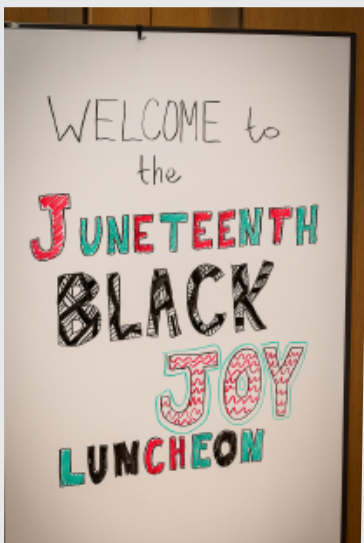 WELCOME to
the
JUNETEENTH
BLACK
JOY
LUNCHEON